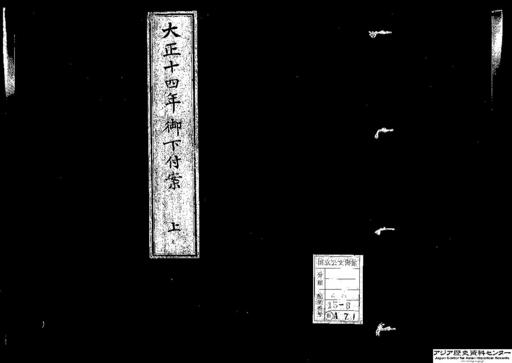 大正十四年御下付案 上
国立公文書館
分類
配架番号
15-8
A 71
アジア歴史資料センター
Japan Center for Asian Historical Records